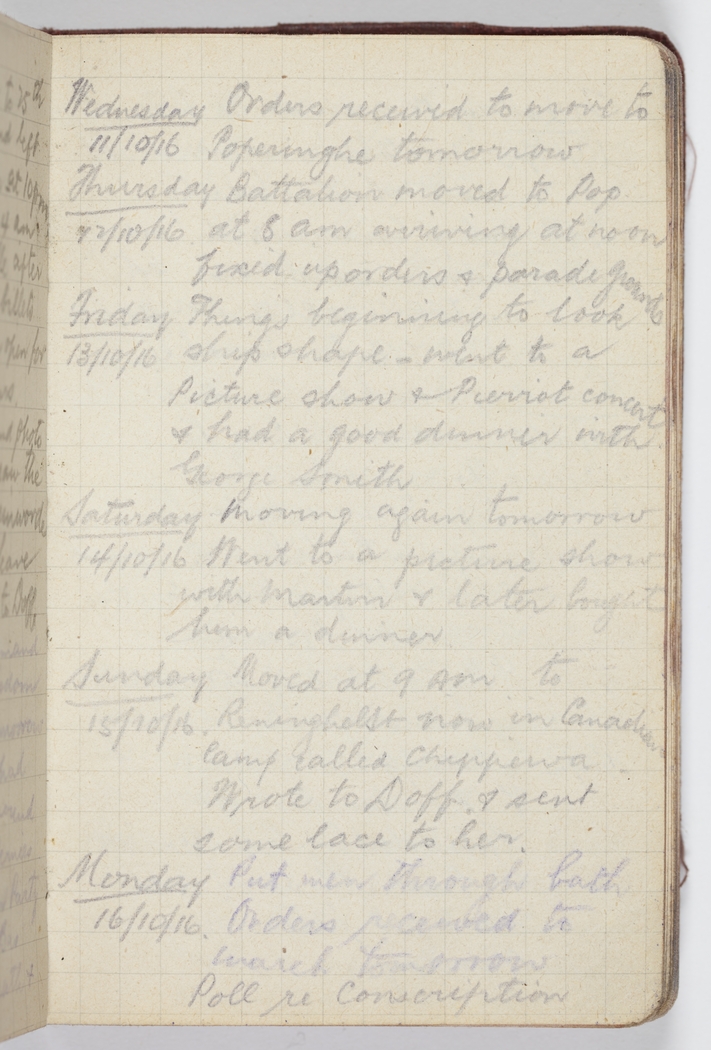 Wednesday Orders received to move to
11/10/16 Poperinghe tomorrow
Thursday Battalion moved to Pop
12/10/16 at 8 am arriving at noon
fixed up orders & parade grounds
Friday Things beginning to look
13/10/16 ship shape - went to a
Picture show & Pierriot concert
& had a good dinner with
George Smith
Saturday Moving again tomorrow
14/10/16 Went to a picture show
with Martin & later bought
him a dinner
Sunday Moved at 9 am to
15/10/16. Reninghelst now in Canadian
Camp called Chippewa.
Wrote to Doff. & sent
some lace to her.
Monday Put men through bath
16/10/16. Orders received to
march tomorrow
Poll re Conscription